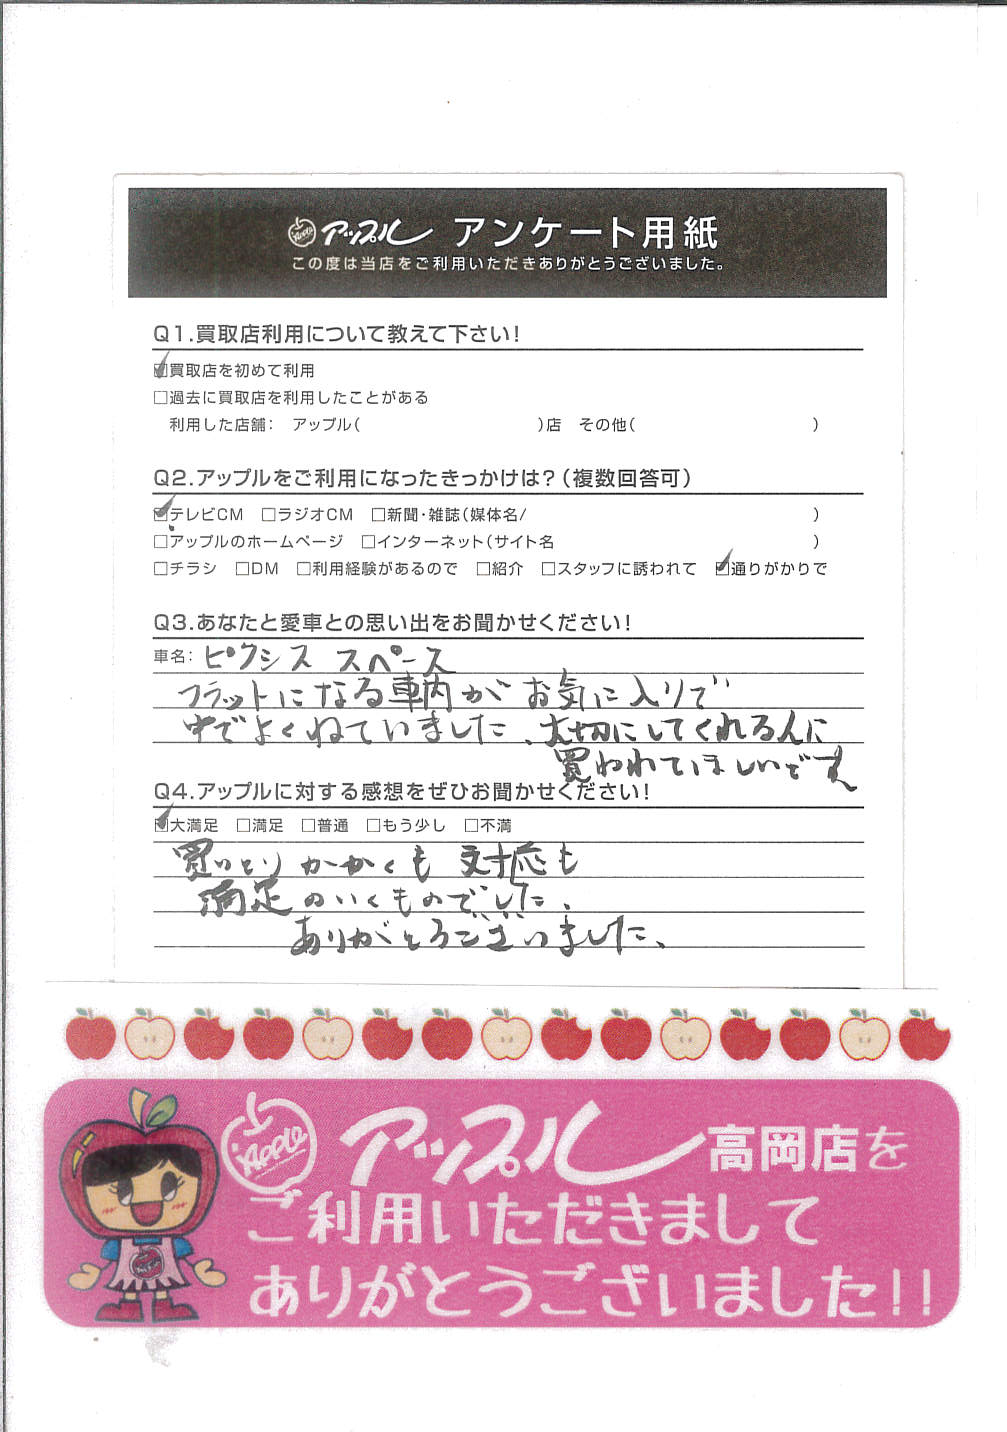 Apple アップル アンケート用紙
この度は当店をご利用いただきありがとうございました。
Q1.買取店利用について教えて下さい!
☑買取店を初めて利用
□過去に買取店を利用したことがある
利用した店舗: アップル( )店 その他( )
Q2.アップルをご利用になったきっかけは?(複数回答可)
☑テレビCM □ラジオCM □新聞・雑誌(媒体名/ )
□アップルのホームページ □インターネット(サイト名 )
□チラシ □DM □利用経験があるので □紹介 □スタッフに誘われて ☑通りがかりで
Q3.あなたと愛車との思い出をお聞かせください!
車名: ピクシス スペース
フラットになる車内が お気に入りで
中でよくねていました、大切にしてくれる人に
買われてほしいです
Q4.アップルに対する感想をぜひお聞かせください!
☑大満足 □満足 □普通 □もう少し □不満
買いとり かかくも 対応も
満足のいくものでした、
ありがとうございました、
Apple アップル 高岡店を
ご利用いただきまして
ありがとうございました!!